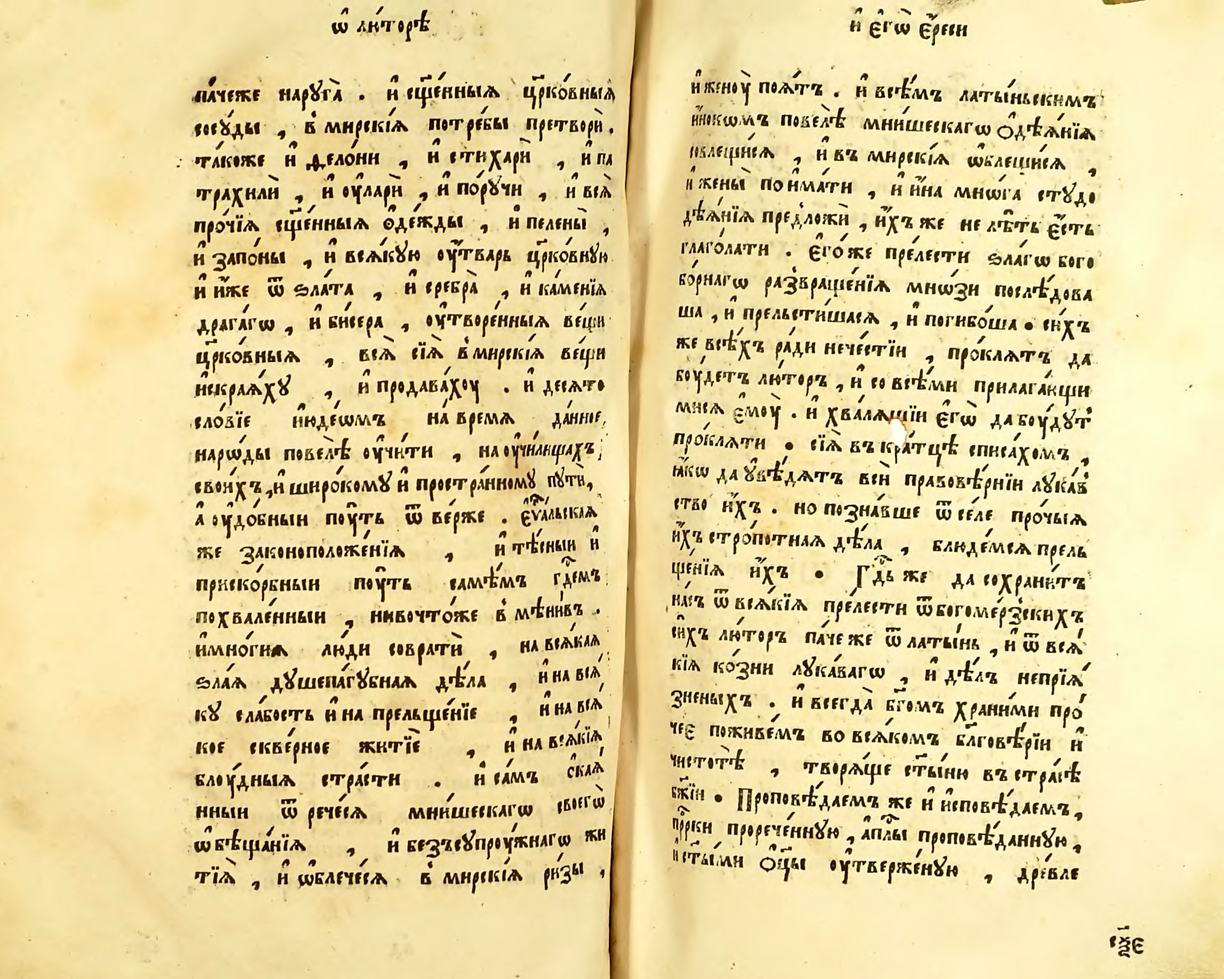 ѡ҆ лю́торѣ
па́чеже наруга̀ . и҆ сщ҃е́нныѧ цр҃ко́вныѧ
сосꙋ́ды , в̾ мирскі́ѧ потре́бы претворѝ .
та́коже и҆ фело́ни , и҆ стихарѝ , и҆ па
трахилѝ , и҆ оу҆ларѝ , и҆ по́рꙋчи , и҆ всѧ̀
про́чїѧ сщ҃е́нныѧ о҆де́жды , и҆ пелены̀ ,
и҆ запо́ны , и҆ всѧ́кꙋю оу҆́тварь цр҃ко́внꙋю
и҆ и҆́же ѿ ѕла́та , и҆ сребра̀ , и҆ ка́менїѧ
драга́гѡ , и҆ би́сера , оу҆творе́нныѧ ве́щи
цр҃ко́вныѧ , всѧ̀ сїѧ̀ в̾ мирскі́ѧ ве́щи
искраѧ́хꙋ , и҆ продава́хоу . и҆ десѧто
сло́вїе и҆ндѣѡмъ на времѧ да́нное ,
наро́ды повелѣ̀ оу҆чи́ти , на оу҆чи́лищахъ ,
свои́хъ , и҆ широ́комꙋ и҆ простра́нномꙋ пꙋти̑ ,
а҆ оу҆до́бныи поу́ть ѿ ве́рже . є҆ѵⷢ҇а́льскаѧ
же законоположе́нїѧ , и҆ тѣ́сныи и҆
приско́рбныи поу́ть самѣ́мъ гдⷭ҇емъ
похвале́нныи , ни во что́же в̾ мѣни́въ .
и҆ мно́гиѧ лю́ди соврати̑ , на всѧ́каѧ
ѕла́ѧ дꙋшепа́гꙋбнаѧ дѣ́ла , и҆ на всѧ́
кꙋ сла́бость и҆ на прельще́нїе , и҆ на всѧ́
кое скве́рное житїѐ , и҆ на всѧ́кїѧ
блоу́дныѧ стра́сти . и҆ са́мъ ѻ҆каѧ́
нныи ѿ рече́сѧ мни́шескагѡ своегѡ̀
ѡ҆бѣща́нїѧ , и҆ безъсупроу́жнагѡ жи
тїѧ̀ , и҆ ѡ҆блече́сѧ в̾ мирскі́ѧ ри́зы ,
и҆ є҆гѡ̀ є҆́реси
и҆ женоу̀ поѧ́тъ . и҆ всѣ́мъ латы́ньскимъ
и҆́нокѡмъ повелѣ̀ мни́шескагѡ ѻ҆дѣѧ́нїѧ
совлещи́сѧ , и҆ въ мирскі́ѧ ѡ҆блещи́сѧ ,
и҆ жены̀ поима́ти , и҆ и҆́на мнѡ́га стꙋдо
дѣѧ́нїѧ предложѝ , и҆́хъ же не лѣ́ть є҆́сть
глаго́лати . є҆го́же пре́лести ѕла́гѡ бого
бо́рнагѡ развраще́нїѧ мно́зи послѣ́дова
ша , и҆ прельсти́шасѧ , и҆ погибо́ша . си́хъ
же всѣ́хъ ра́ди нече́стїи , про́клѧтъ да
боу́детъ лю́торъ , и҆ со всѣ́ми прилага́ющи
мисѧ є҆моу̀ . и҆ хва́лѧщїи є҆гѡ̀ да боу́дꙋт
про́клѧти . сїѧ̀ въ кра́тцѣ списа́хомъ ,
ꙗ҆́кѡ да ᲂувѣ́дѧтъ всѝ правовѣ́рнїи лꙋка́в
ство и҆́хъ . но позна́вше ѿ се́ле про́чыѧ
и҆́хъ стро́потнаѧ дѣ́ла , блюде́мсѧ прель
ще́нїѧ и҆́хъ . Гдⷭ҇ь же да сохрани́тъ
на́съ ѿ всѧ́кїѧ пре́лести ѿ богоме́рзскихъ
си́хъ лю́торъ па́че же ѿ латы́нь , и҆ ѿ всѧ́
кїѧ ко́зни лꙋка́вагѡ , и҆ дѣ́лъ непрїѧ́
зненыхъ . и҆ всегда̀ бг҃омъ храни́ми про́
чее поживе́мъ во всѧ́комъ бл҃говѣ́рїи и҆
чистотѣ̀ , творѧ́ще ст҃ы́ню въ стра́сѣ
бж҃їи . Проповѣ́даем же и҆ и҆сповѣ́даемъ ,
прⷪ҇рки прорече́ннꙋю , а҆пⷭ҇лы проповѣ́даннꙋю ,
и҆ ст҃ы́ми ѻ҆ц҃ы оу҆твержѐнꙋю , дре́вле